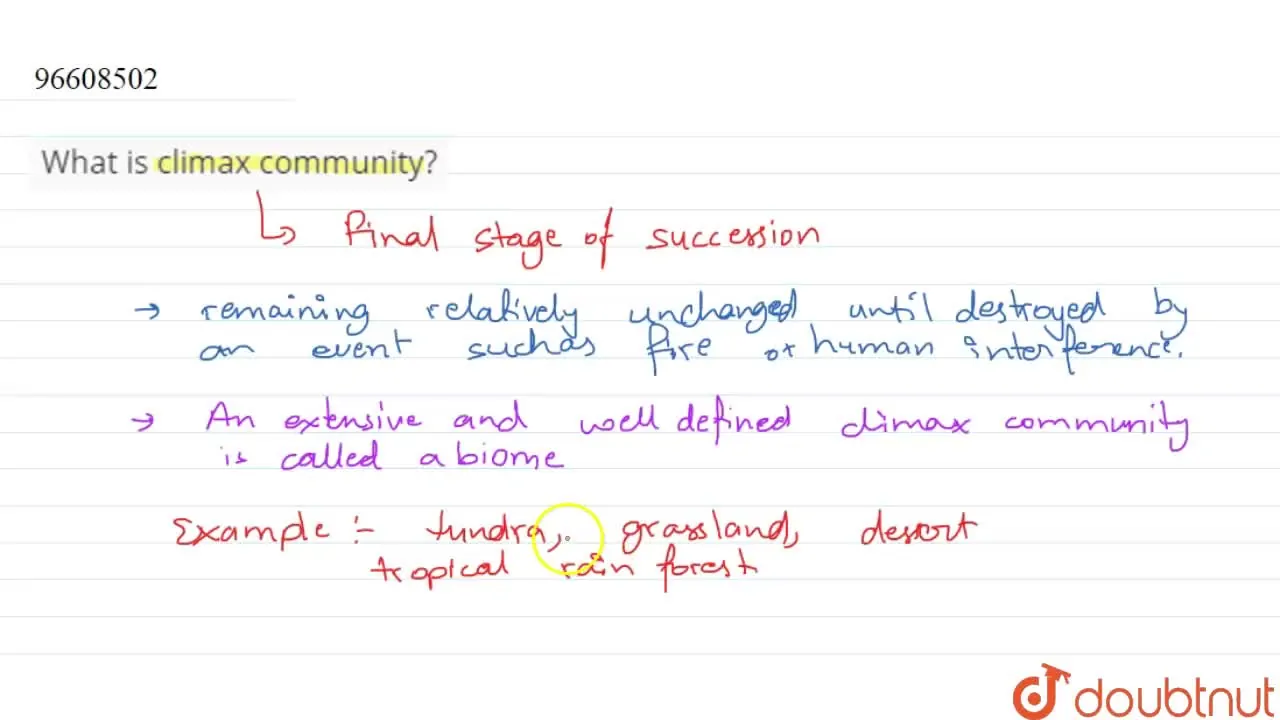 96608502
What is climax community?
↳ Final stage of succession
→ remaining relatively unchanged until destroyed by
an event such as fire or human interference.
→ An extensive and well defined climax community
is called a biome
Example :- tundra, grassland, desert
tropical rain forest
doubtnut